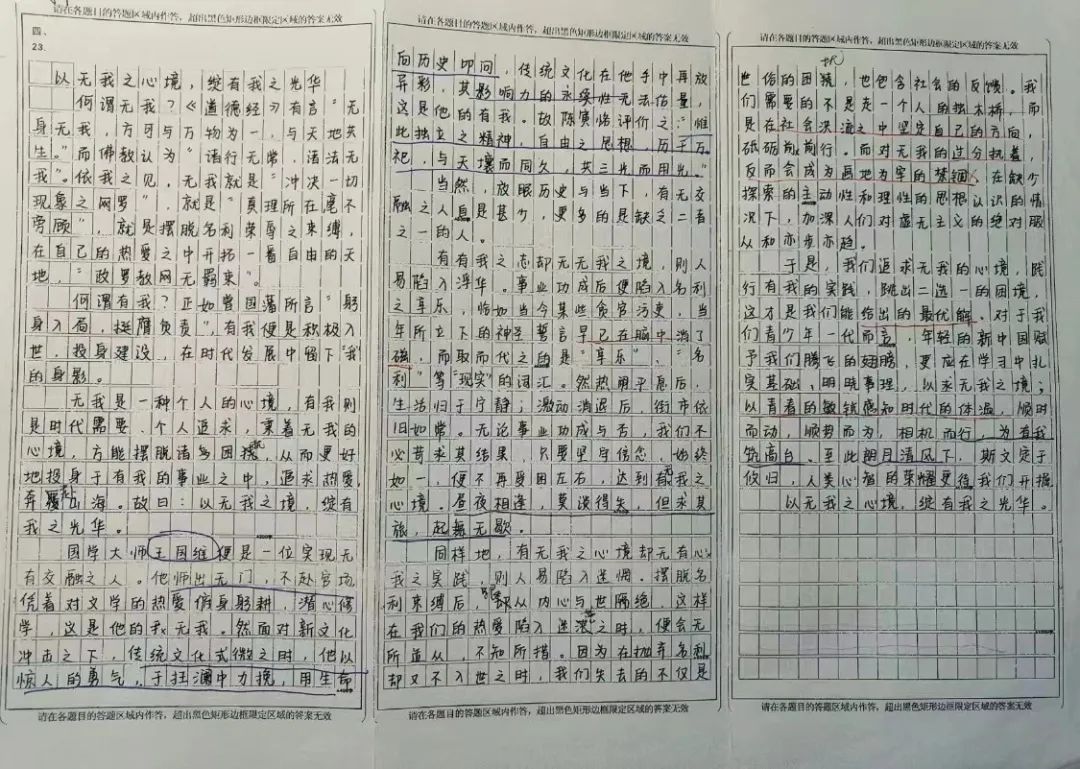 请在各题目的答题区域内作答，超出黑色矩形边框限定区域的答案无效
四、
23.
以无我之心境，绽有我之光华
何谓无我？《道德经》有言“无
身无我，方可与万物为一，与天地共
生。”而佛教认为“诸行无常，诸法无
我”。依我之见，无我就是“冲决一切
现象之网罗”，就是“真理所在毫不
旁顾”，就是摆脱名利荣辱之束缚，
在自己的热爱之中开拓一番自由的天
地，“政罗教网无羁束”。
何谓有我？正如曾国藩所言“躬
身入局，挺膺负责”，有我便是积极入
世，投身建设，在时代发展中留下“我”
的身影。
无我是一种个人的心境，有我则
是时代需要、个人追求，秉着无我的
心境，方能摆脱诸多困扰，从而更好
地投身于有我的事业之中，追求热爱，
奔赴山海。故曰：以无我之境，绽有
我之光华。
国学大师王国维便是一位实现无
有交融之人。他师出无门，不赴官场，
凭着对文学的热爱俯身躬耕，潜心修
学，这是他的无我。然面对新文化
冲击之下，传统文化式微之时，他以
惊人的勇气，于狂澜中力挽，用生命
请在各题目的答题区域内作答，超出黑色矩形边框限定区域的答案无效
请在各题目的答题区域内作答，超出黑色矩形边框限定区域的答案无效
向历史叩问，传统文化在他手中再放
异彩，其影响力的永续性无法估量，
这是他的有我。故陈寅恪评价之：“惟
此独立之精神，自由之思想，历千万
祀，与天壤而同久，共三光而用光。”
当然，放眼历史与当下，有无交
融之人自是甚少，更多的是缺之二者
之一的人。
有有我之志却无无我之境，则人
易陷入浮华。事业功成后便陷入名利
之享乐，恰如当今某些贪官污吏，当
年所立下的神圣誓言早已在脑中消了
磁，而取而代之的是“享乐”、“名
利”等“现实”的词汇。然热闹平息后，
生活归于宁静；激动消退后，街市依
旧如常。无论事业功成与否，我们不
必苛求其结果，只要坚守信念，始终
如一，便不再受困左右，达到无我之
心境。昼夜相逢，莫谈得失，但求其
旅，起舞无歇。
同样地，有无我之心境却无有
我之实践，则人易陷入迷惘。摆脱名
利束缚后，却从内心与世隔绝，这样
在我们的热爱陷入迷惘之时，便会无
所适从，不知所措。因为在抛弃名利
却又不入世之时，我们失去的不仅是
请在各题目的答题区域内作答，超出黑色矩形边框限定区域的答案无效
请在各题目的答题区域内作答，超出黑色矩形边框限定区域的答案无效
世俗的困扰，也包含社会的反馈。我
们需要的不是走一个人的独木桥，而
是在社会洪流之中坚定自己的方向，
砥砺前行。而对无我的过分执着，
反而会成为画地为牢的禁锢，在缺少
探索的主动性和理性的思想认识的情
况下，加深人们对虚无主义的绝对服
从和亦步亦趋。
于是，我们追求无我的心境，践
行有我的实践，跳出二选一的困境，
这才是我们能给出的最优解。对于我
们青少年一代而言，年轻的新中国赋
予我们腾飞的翅膀，更应在学习中扎
实基础、明晓事理，以求无我之境；
以青春的敏锐感知时代的体温，顺时
而动，顺势而为，相机而行，为有我
筑高台。至此朗月清风下，斯文定于
候归，人类心智的荣耀更待我们开掘
以无我之心境，绽有我之光华。
请在各题目的答题区域内作答，超出黑色矩形边框限定区域的答案无效